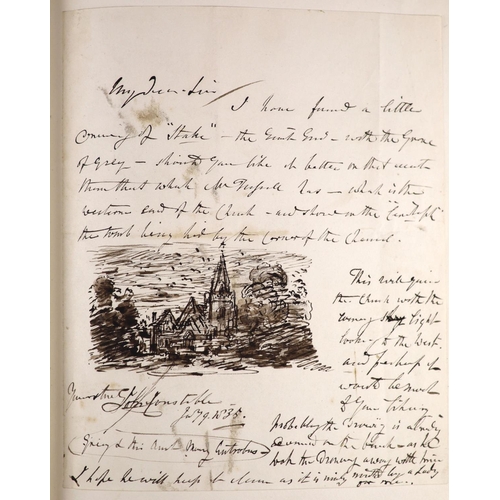 My dear Sir
I have found a little
drawing of "Stoke" - the East End - with the Grave
of Grey - should you like it better on that account
than that which Mr Russell has - which is the
western end of the Church - and shows in the
the tomb being hid by the corner of the Chancel.
This will give
the Church with the
evening light
looking to the West
and perhaps it
would be most
to your liking
Yours true John Constable
July 9. 1835
Grey & his Aunt Mary Antrobus
Probably the Drawing is already
on the - as he
took the Drawing away with him
I hope he will keep it clean as it is nicely by a lady
for me.